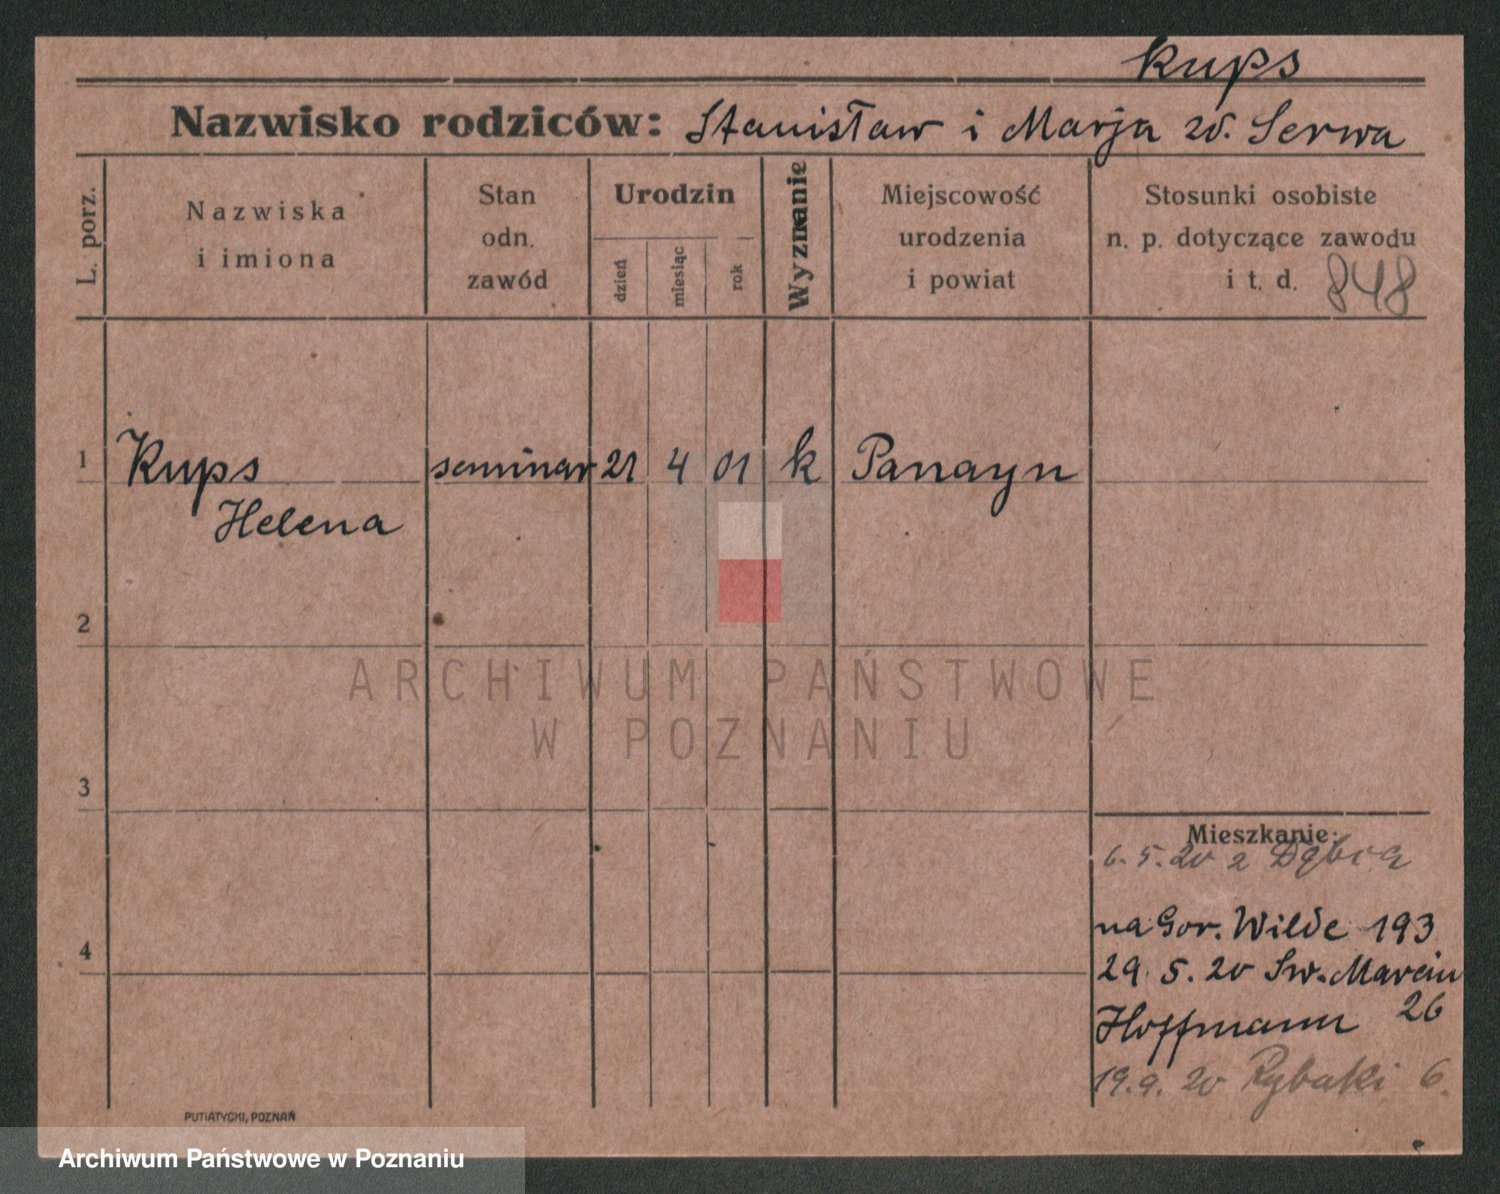 Kups
Nazwisko rodziców: Stanisław i Marja zd. Serwa
L. porz.
Nazwiska i imiona
Stan odn. zawód
Urodzin
dzień
miesiąc
rok
Wyznanie
Miejscowość urodzenia i powiat
Stosunki osobiste
n. p. dotyczące zawodu
i t. d. 848
1 Kups seminar 21 4 01 k Panayn
Helena
2
ARCHIWUM PAŃSTWOWE
W POZNANIU
3
Mieszkanie:
6. 5. 20 z
4
na Gor. Wilde 193
29. 5. 20 Św. Marcin
26
Hoffmann
19. 9. 20 Rybaki 6.
PUTIATYCKI, POZNAŃ
Archiwum Państwowe w Poznaniu